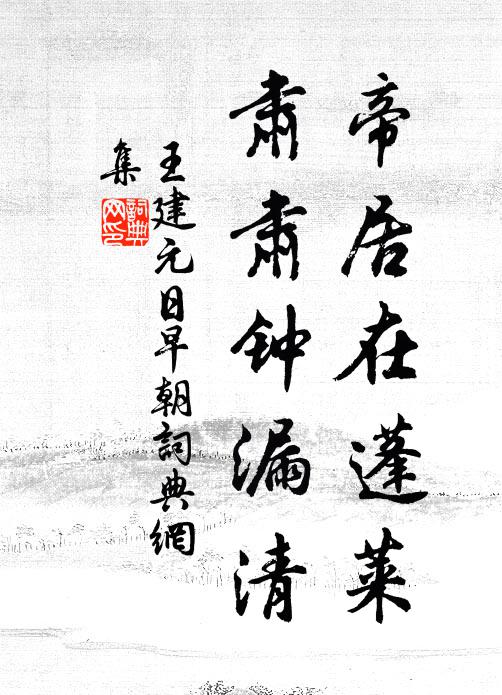 帝居在蓬莱
肃肃钟漏清
王建元日早朝詞典網
集
詞典网印